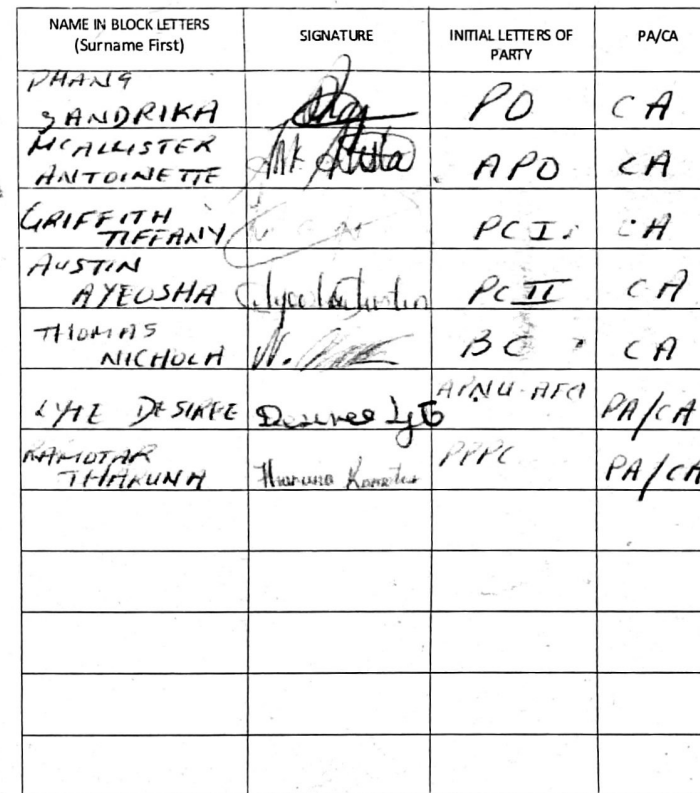 NAME IN BLOCK LETTERS SIGNATURE INITIAL LETTERS OF PA/CA
(Surname First) PARTY
PHANG
SANDRIKA PO CA
MCALLISTER
ANTOINETTE APO CA
GRIFFITH
TIFFANY PCI. CA
AUSTIN
AYEOSHA PCII CA
THOMAS
NICHOLA N. BC CA
LYTE DESIREE Desiree Lyte APNU-AFC PA/CA
RAMOTAR PPPC
THARUNA Tharuna Ramotar PA/CA